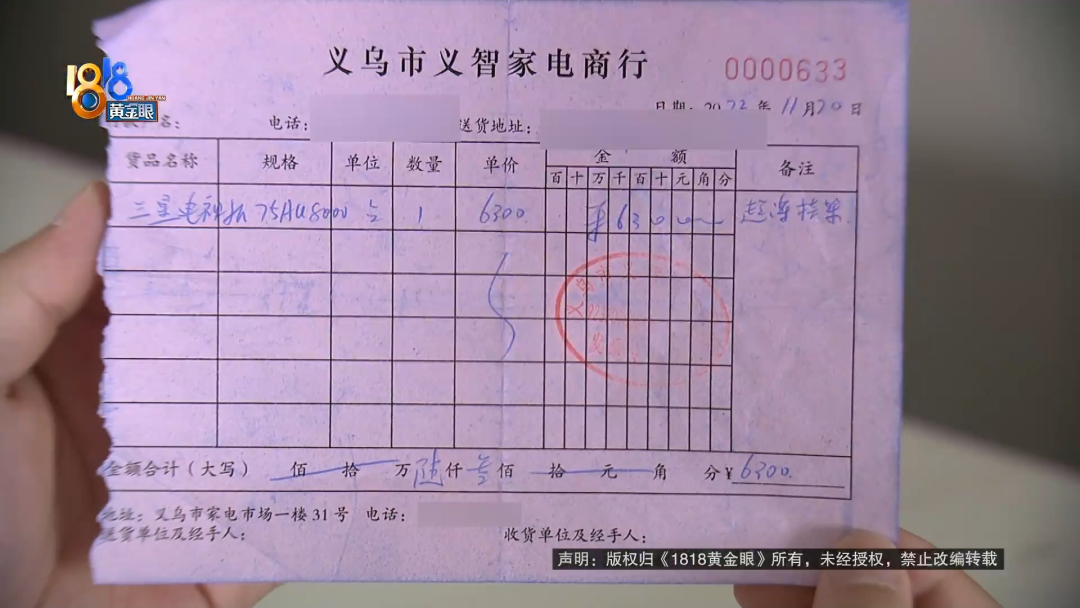 1818
HUANG JIN YAN
黄金眼
义乌市义智家电商行
0000633
日期: 2022年11月20日
电话: 送货地址:
货品名称 规格 单位 数量 单价 金额 备注
百 十 万 千 百 十 元 角 分
三星电视机 75AU8000 台 1 6300 ¥6300 挂架
义乌市义
金额合计（大写） 佰 拾 万 陆仟 叁佰 拾 元 角 分¥ 6300.
地址: 义乌市家电市场一楼31号 电话:
送货单位及经手人: 收货单位及经手人:
声明：版权归《1818黄金眼》所有，未经授权，禁止改编转载